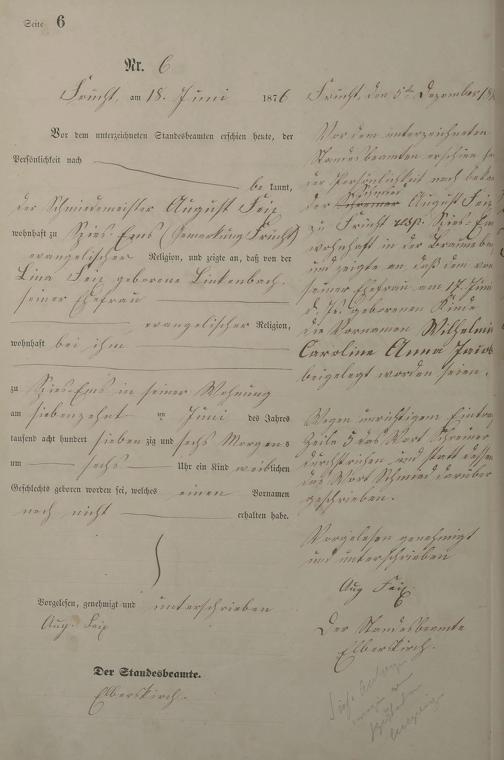 Seite 6
Nr. 6
Frücht, am 18. Juni 1876
Vor dem unterzeichneten Standesbeamten erschien heute, der
Persönlichkeit nach
be kannt,
der Schmiedemeister August Feix
wohnhaft zu Spies-Ems (Gemarkung Frücht)
evangelischer Religion, und zeigte an, daß von der
Lina Feix geborene Linkenbach
seiner Ehefrau
evangelischer Religion,
wohnhaft bei ihm
zu Spies-Ems in seiner Wohnung
am siebenzehnt en Juni des Jahres
tausend acht hundert sieben zig und sechs Morgens
um sechs Uhr ein Kind weiblichen
Geschlechts geboren worden sei, welches einen Vornamen
noch nicht erhalten habe.
Vorgelesen, genehmigt und unterschrieben
Aug. Feix
Der Standesbeamte.
Elberskirch.
Frücht, den 5ten Dezember 18
Vor dem unterzeichneten
Standesbeamten erschien
der Persönlichkeit nach
Schmied
der Schreiner August Feix
zu Frücht resp. Spies-Em
wohnhaft in der
und zeigte an daß dem von
seiner Ehefrau am 17. Juni
d. Js. geborenen Kinde
die Vornamen Wilhelmi
Caroline Anna Jacob
beigelegt worden seien.
Wegen unrichtigem Eintrag
Zeile 5 das Wort Schreiner
durchstrichen und statt dessen
das Wort Schmied darüber
geschrieben.
Vorgelesen genehmigt
und unterschrieben
Aug Feix
Der Standesbeamte
Elberskirch.